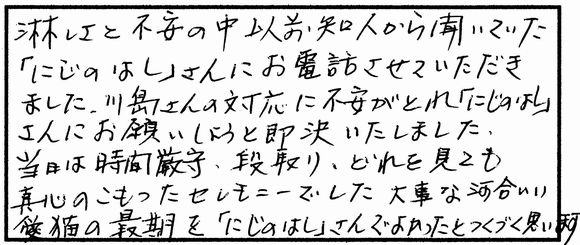 淋しさと不安の中以前、知人から聞いていた
「にじのはし」さんにお電話させていただき
ました、川島さんの対応に不安がとれ「にじのはし」
さんにお願いしようと即決いたしました、
当日は時間厳守、段取り、どれを見ても
真心のこもったセレモニーでした 大事な可合いい
愛猫の最期を「にじのはし」さんでよかったとつくづく思い